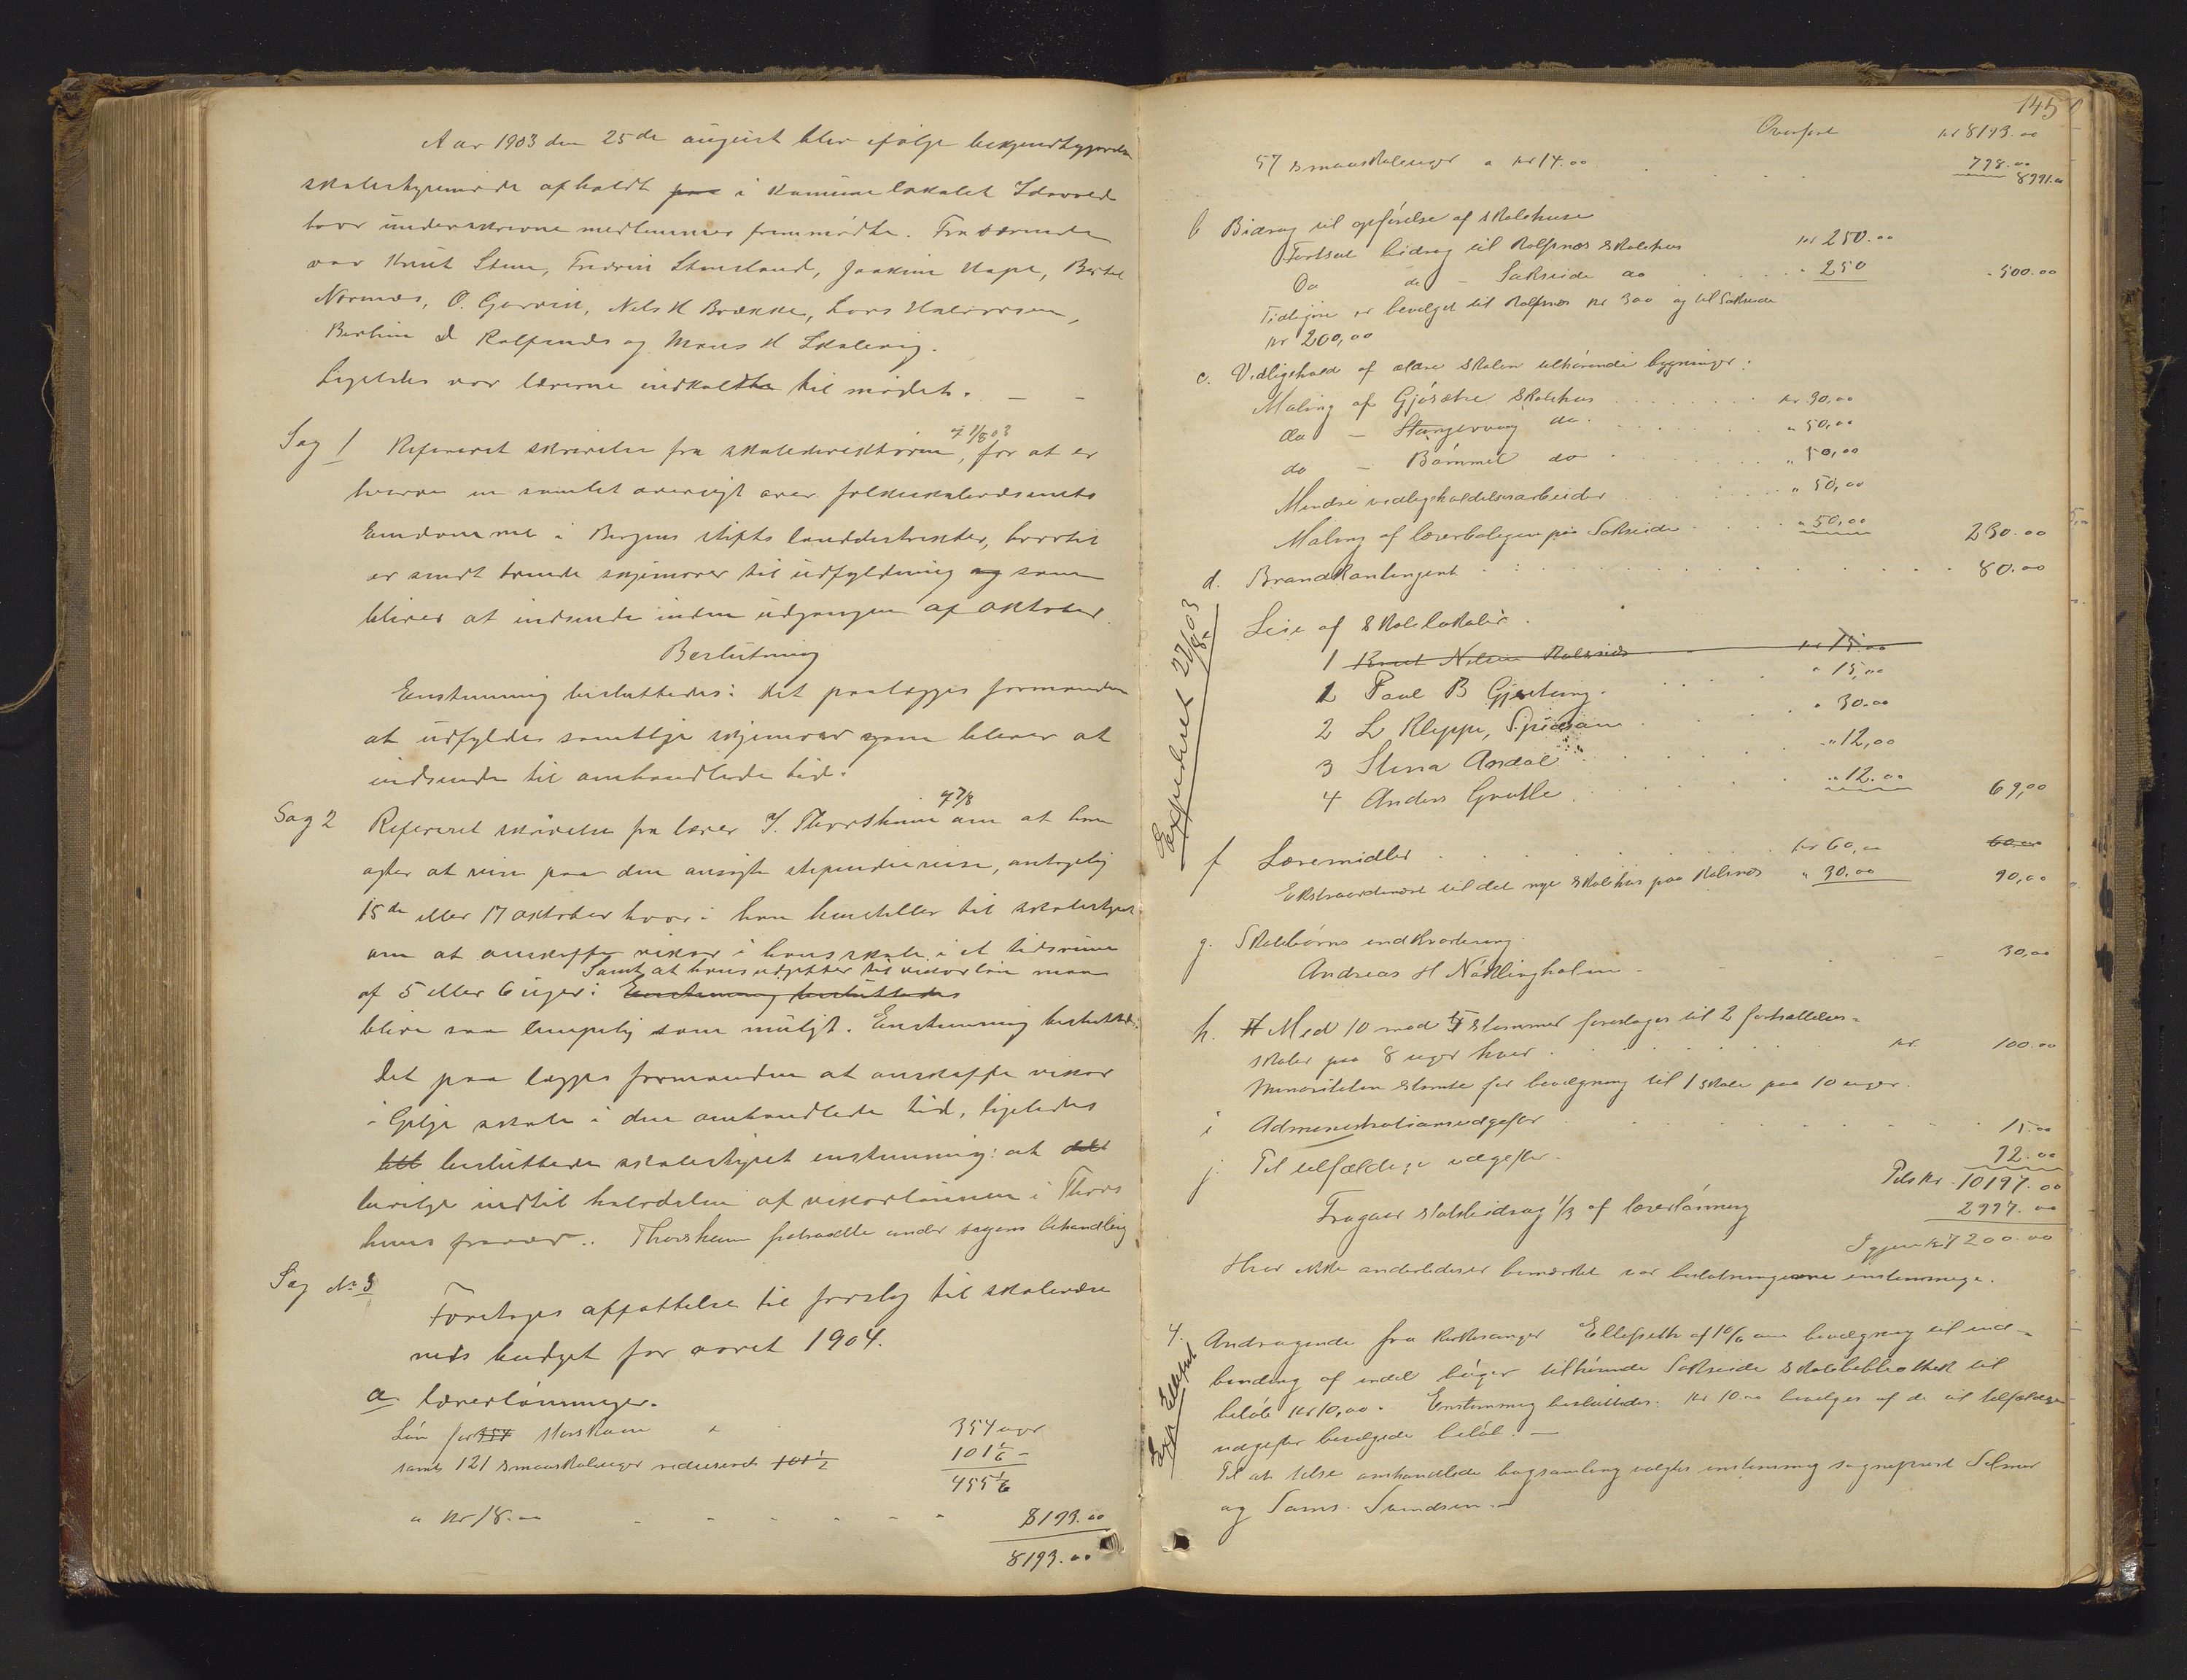 Aar 1903 den 25de august blev ifølge bekjendtgjørelse
skolestyremøde afholdt paa i kommunelokalet Idavold
hvor underskrevne medlemmer fremmødte. Fraværende
var Knut Stene, Fredrik Stensland, Joakim Hope, Bertel
Nornæs, O. Garvik, Nels H Brække, Lars Halvorsen,
Berthin D Rolfsnæs og Mons H Lokling.
Ligeledes var lærerne indkaldte til mødet. — —
Sag 1 Refereret skrivelse fra skoledirektøren af 1/8 03, for at er
hverve en samlet oversigt over folkeskolevæsenets
Eiendomme i Bergens stifts landdistrikter, hvortil
er sendt trende skjemaer til udfyldning og som
bliver at indsende inden udgangen af oktober.
Beslutning
Enstemmig besluttedes: det paalægges formanden
at udfyldes samtlige skjemaer som bliver at
indsende til omhandlede tid.
Sag 2 Refereret skrivelse fra lærer J. Thorsheim af 7/8 om at han
agter at reise paa den ansøgte stipendiereise, antagelig
15de eller 17 oktober hvori han henstiller til skolestyret
om at anskaffe vikar i hans skole i et tidsrum
Samt at hans udgifter til vikarløn maa
af 5 eller 6 uger: Enstemmig besluttedes
blive saa lempelig som muligt. Enstemmig besluttedes:
Det paalægges formanden at anskaffe vikar
i Gilje skole i den omhandlede tid, ligeledes
det besluttede skolestyret enstemmig: at det
bevilge indtil halvdelen af vikarlønnen i Thors
heims fravær.. Thorsheim fratraadte under sagens behandling
Sag No 3
Foretoges affattelse til forslag til skolevæse
nets budget for aaret 1904.
a. Lærerlønninger.
Løn for 354 storskoleu " 354 uger
samt 121 smaaskoleuger reduseret 101 1/2 101 1/6 -
455 1/6
a kr 18.00 - - - - - - 8193.00
8193.00
145
Overført kr 8193.00
57 smaaskoleuger a kr 14.00 . . . 798.00
8991.00
b Bidrag til opførelse af skolehuse
Fortsat bidrag til Rolfsnæs skolehus kr 250.00
Do do - Sakseide do . . . . " 250 - 500.00
Tidligere er bevilget til Rolfsnæs kr 300 og til Sakseide
kr 200,00
c. Vedligehold af ældre skolen tilhørende bygninger:
Maling af Gjøsætre skolehus . . . . . . kr. 30,00
do — Stangervaag do. . . . . . " 50,00
do — Bømmel do . . . . . . " 50,00
Mindre vedligeholdelsesarbeider . . . . . . " 50,00
Maling af lærerboligen paa Sakseide . . . . " 50,00 230.00
d. Brandkontingent . . . . . . . . . . 80.00
Expederet 27/8 03
Leie af skolelokaler.
1 Knut Nelsen Rolfsnæs kr 15.00
1 Paul B Gjertung . . . . . " 15,00
2 L Kleppe, Spidsøen . . . . . " 30.00
3 Stina Andal . . . . . " 12,00
4 Anders Grutle . . . . . " 12.00 69,00
f Læremidler . . . . . . . . kr 60,00 60,00
Ekstraordinært til det nye skolehus paa Rolsnæs " 30.00 90,00
g. Skolebørns indkvartering.
Andreas H Nøklingholm - - - 30,00
h. # Med 10 mod 5 stemmer foreslages til 2 fortsættelses-
skoler paa 8 uger hver . . . . . . kr. 100.00
Minoriteten stemte for bevilgning til 1 skole paa 10 uger.
i Administrationsudgifter . . . . . . . 15.00
j. Til tilfældige udgifter. 92.00
Tils kr. 10197.00
Fragaar statsbidrag 1/3 af lærerlønning 2997.00
Igjen kr 7200.00
Hvor ikke anderledes er bemærket var beslutningerne enstemmige.
4. Andragende fra kirkesanger Ellefseth af 10/6 om bevilgning til ind-
Exp Ellefset
binding af endel bøger tilhørende Sakseide skolebibliothek til
beløb kr 10,00. Enstemmig besluttedes: kr 10.00 bevilges af de til tilfældige
udgifter bevilgede beløb. —
Til at tilse omhandlede bogsamling valgtes enstemmig sogneprest Selmer
og Sams. Svendsen. —